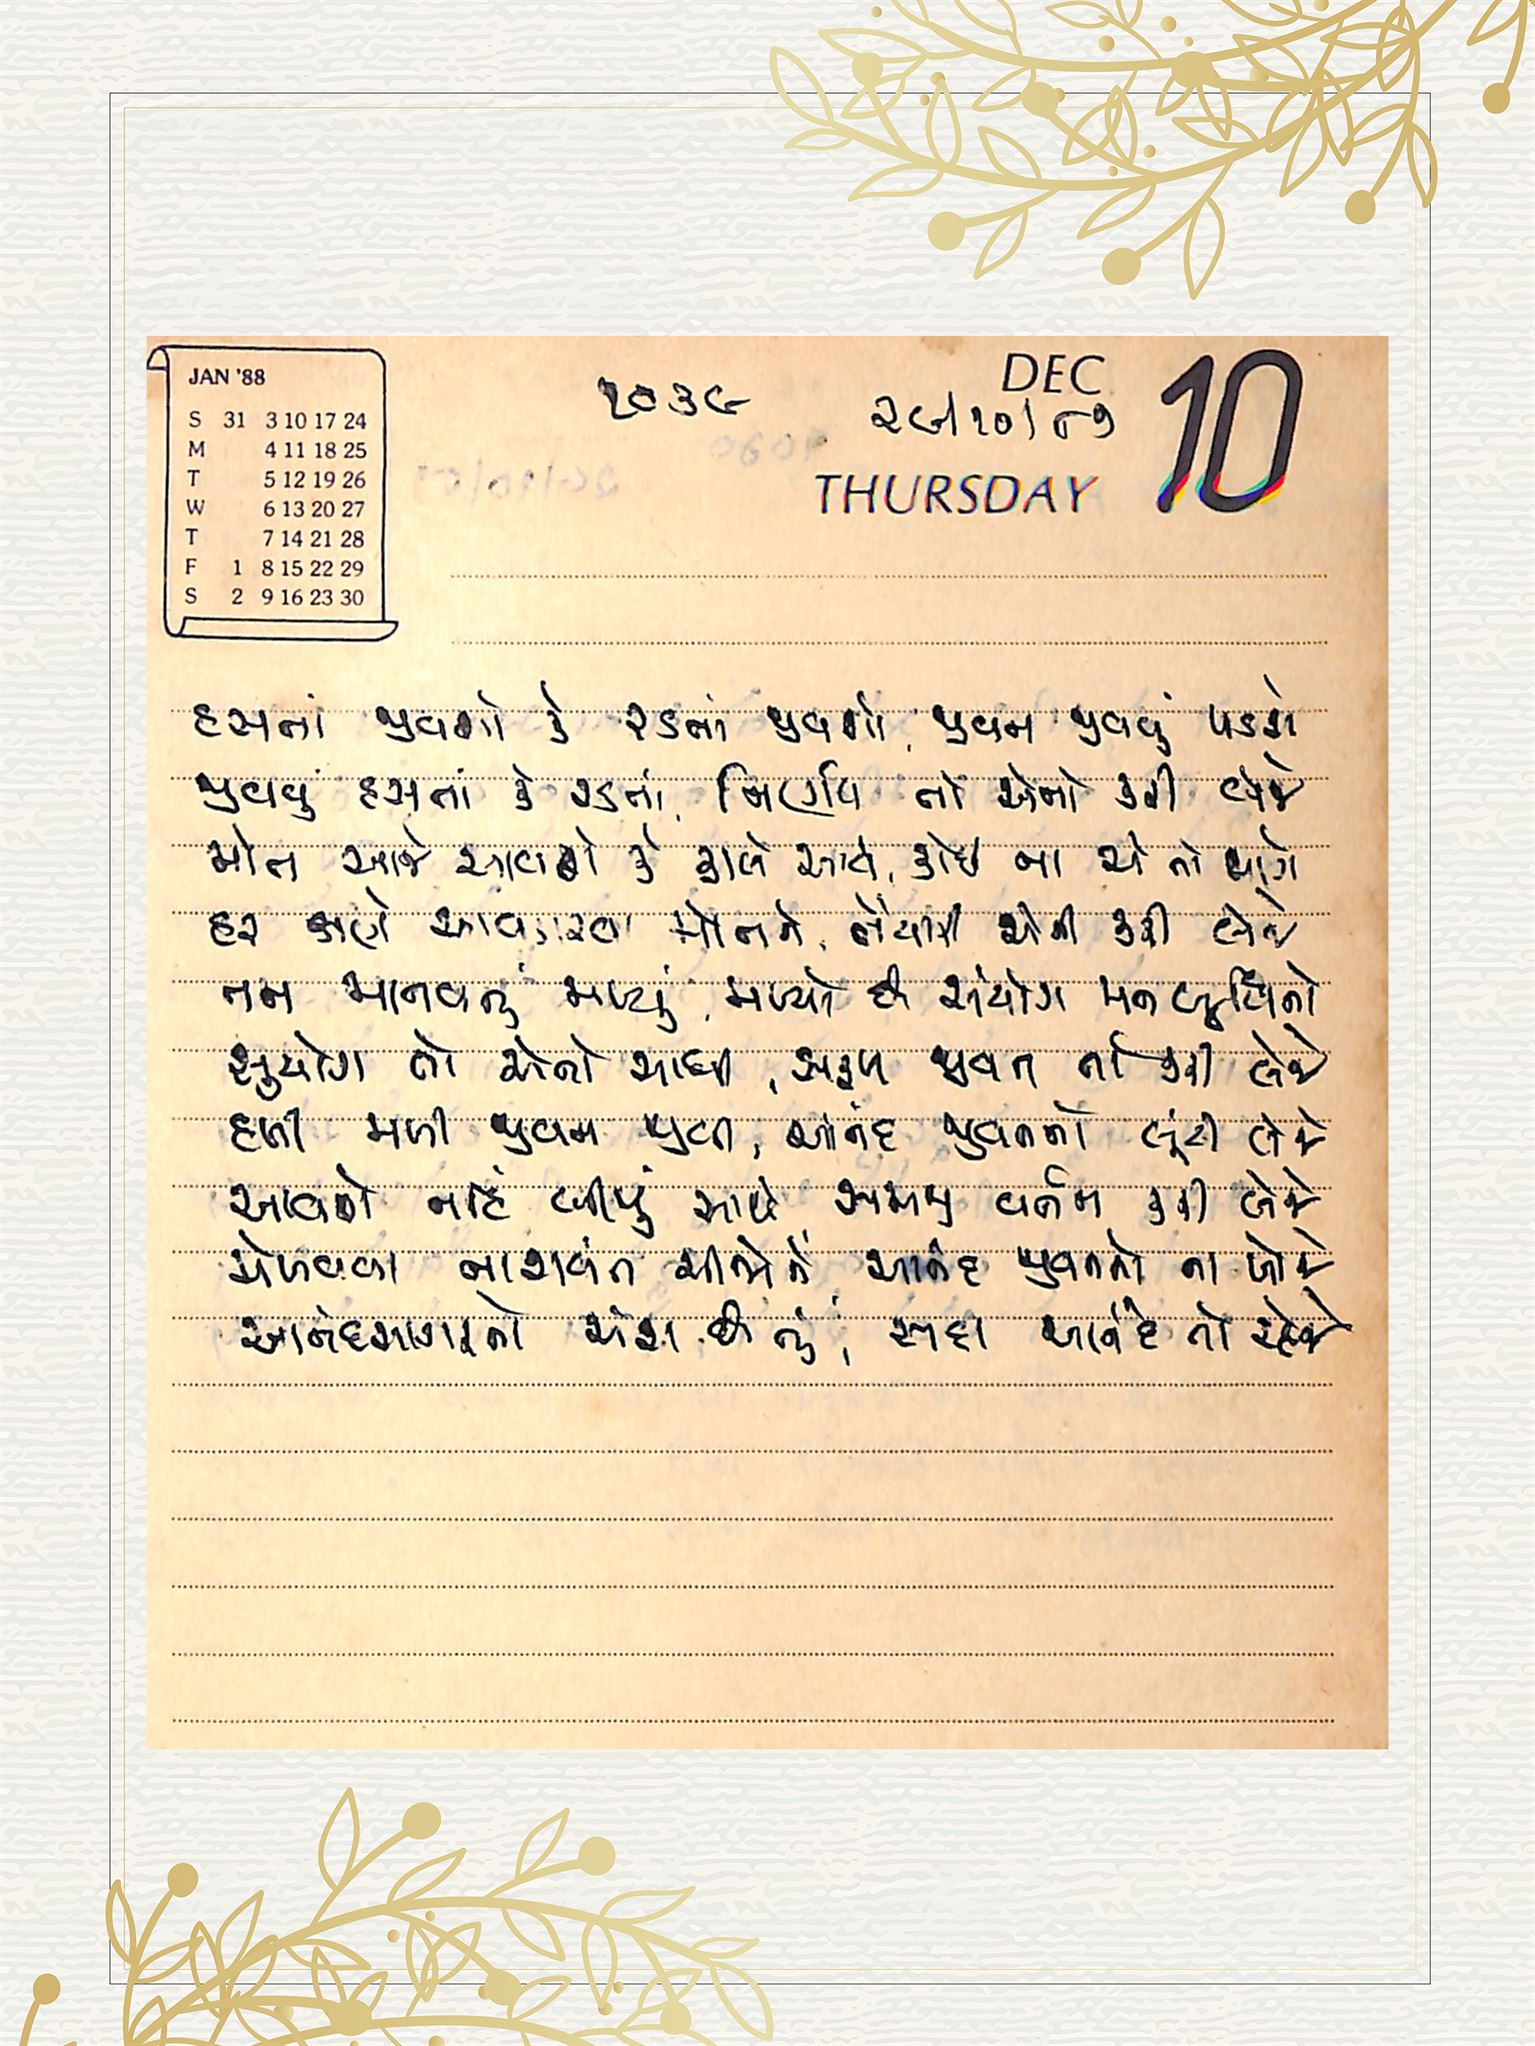 JAN '88
S 31 3 10 17 24
M 4 11 18 25
T 5 12 19 26
W 6 13 20 27
T 7 14 21 28
F 1 8 15 22 29
S 2 9 16 23 30
૧૦૩૯
DEC 10
૨૯/૧૦/૮૭
THURSDAY
હસતાં જીવશો કે રડતાં જીવશો, જીવન જીવવું પડશે
જીવવું હસતાં કે રડતાં, નિર્ણય તો એનો કરી લેજે
મોત આજે આવશે કે કાલે આવે, કોઈ ના એ તો જાણે
હર ક્ષણે આવકારવા મોતને, તૈયારી એની કરી લેજે
તન માનવનું મળ્યું, મળ્યો છે સંયોગ મન બુદ્ધિનો
સુયોગ તો એનો સાધી, સફળ જીવન તો કરી લેજે
હળી મળી જીવન જીવી, આનંદ જીવનનો લૂંટી લેજે
આવશે નહિ બીજું સાથે, સમજી વર્તન કરી લેજે
મેળવવા નાશવંત ચીજોને, આનંદ જીવનનો ના ખોજે
આનંદસાગરનો અંશ છે તું, સદા આનંદે તો રહેજે